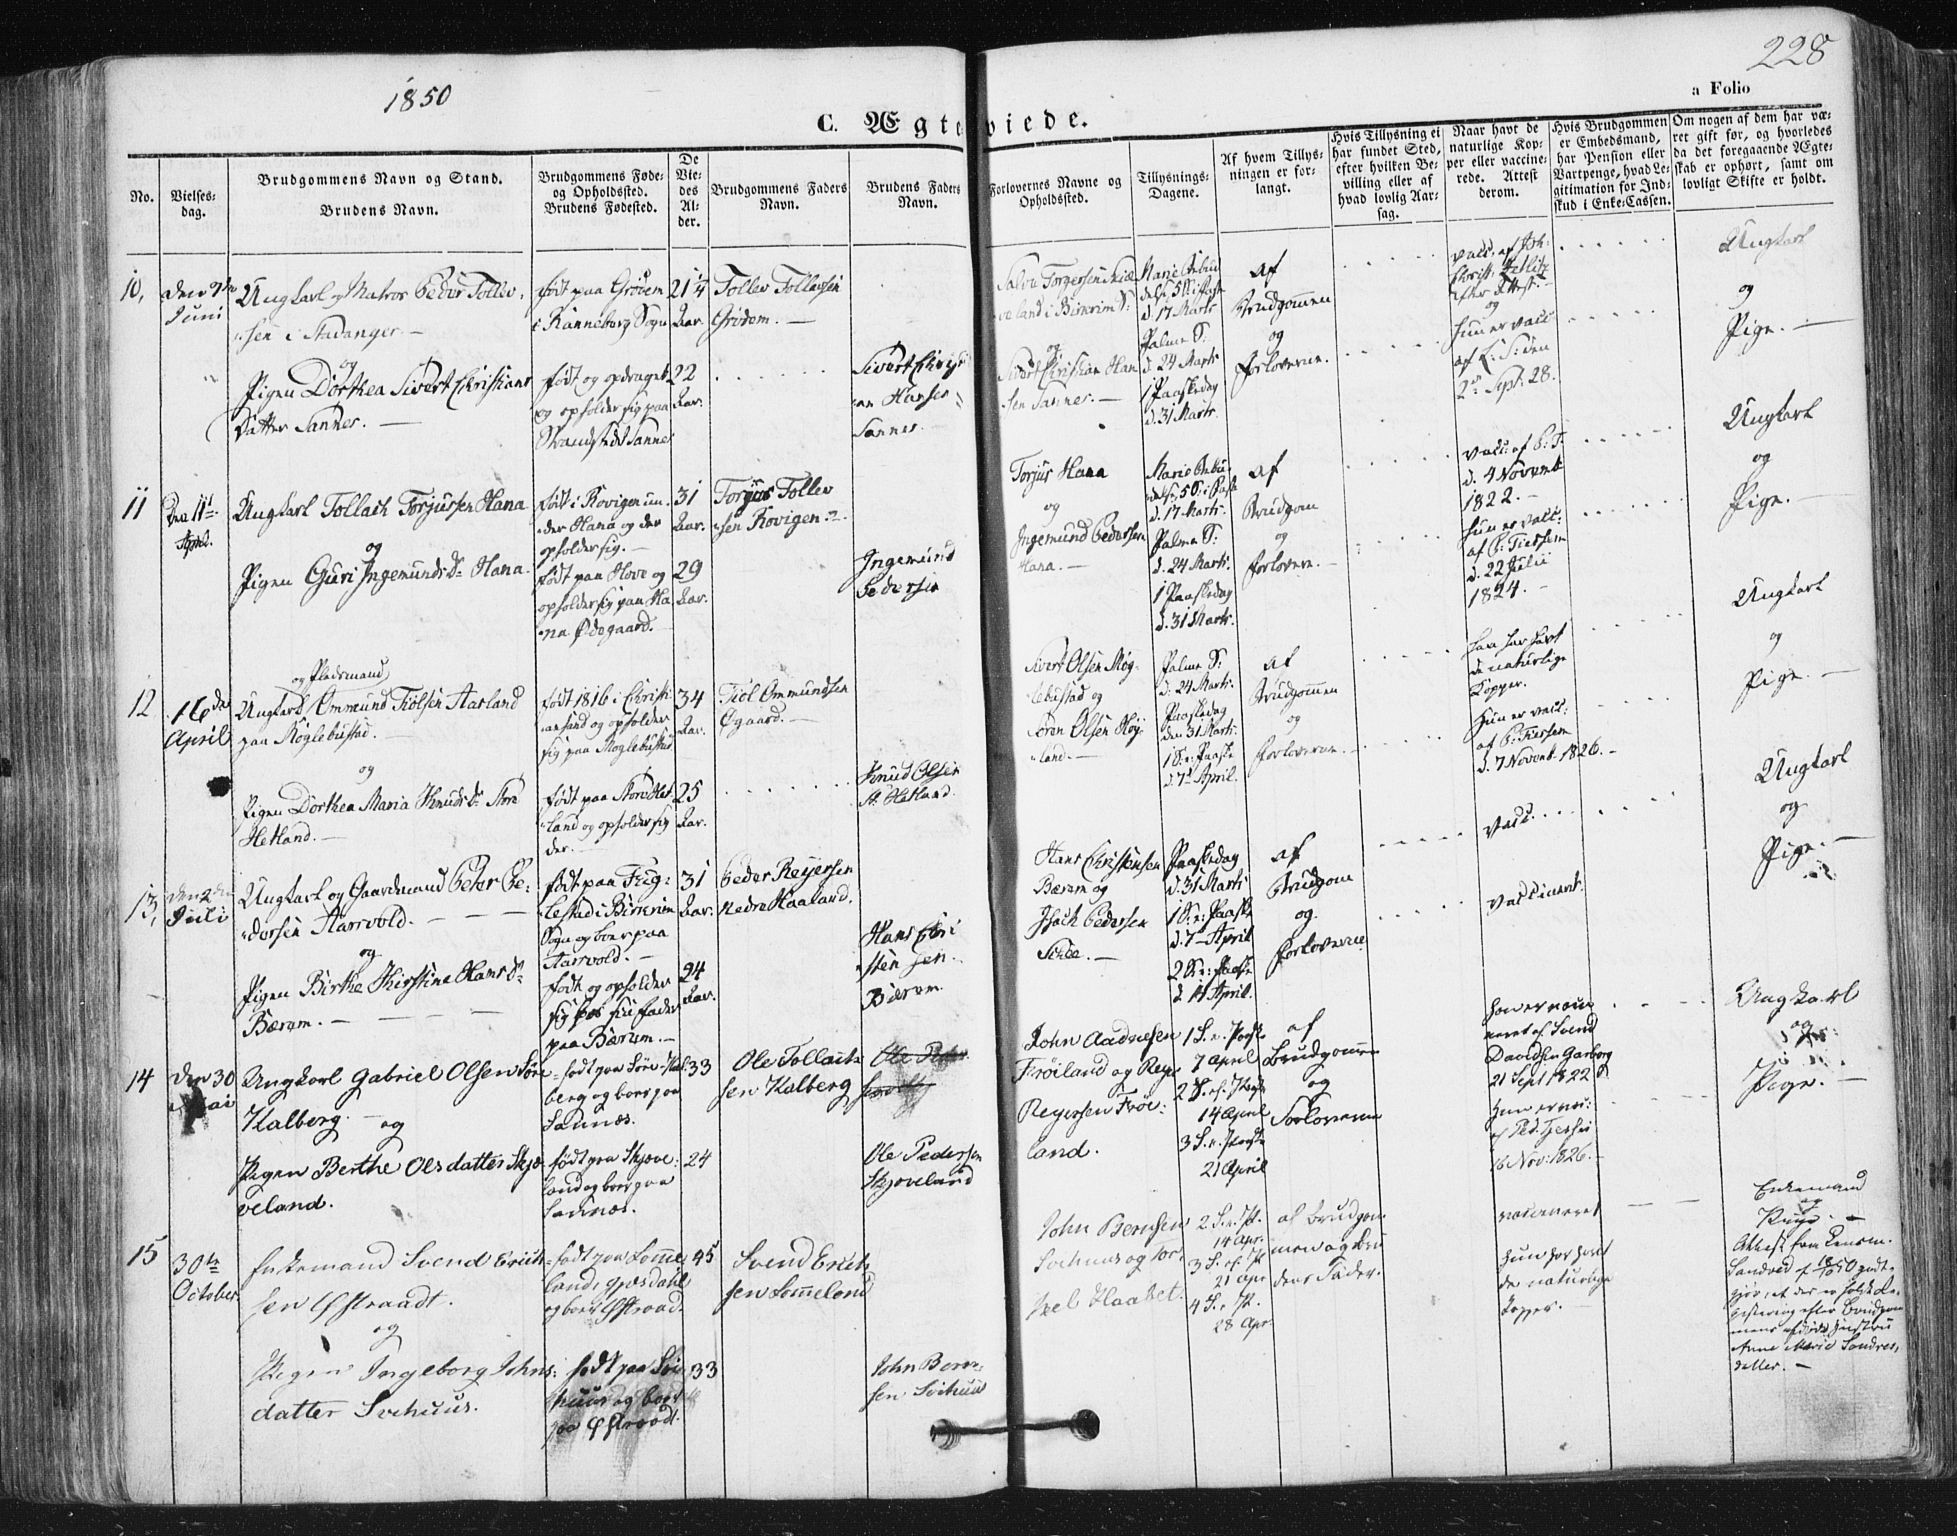 1850
228
a Folio
C. Ægteviede.
No.
Vielses-
dag.
Brudgommens Navn og Stand.
Brudens Navn.
Brudgommens Føde-
og Opholdssted.
Brudens Fødested.
De
Vie-
des
Al-
der.
Brudgommens Faders
Navn.
Brudens Faders
Navn.
Forlovernes Navne og
Opholdssted.
Tillysnings-
Dagene.
Af hvem Tillys-
ningen er for-
langt.
Hvis Tillysning ei
har fundet Sted,
efter hvilken Be-
villing eller af
hvad lovlig Aar-
sag.
Naar havt de
naturlige Kop-
per eller vaccine-
rede. Attest
derom.
Hvis Brudgommen
er Embedsmand,
har Pension eller
Vartpenge, hvad Le-
gitimation for Ind-
skud i Enke-Cassen.
Om nogen af dem har væ-
ret gift før, og hvorledes
da det foregaaende Ægte-
skab er ophørt, samt om
lovligt Skifte er holdt.
10,
Juni
Ungkarl og Matros Peder Tollev-
sen i Stavanger.
og
Pigen Dorthea Sivert Christians
Datter Sannes.
født paa Grødem
i Ranneberg Sogn
21 1/4
Aar.
født og opdraget
og opholder sig paa
Strandstedet Sannes
22
Aar.
Tollev Tollefsen
Grødem.
Sivert Christi-
an Hansen
Sannes.
og
Sivert Christian Han
sen Sannes.
Marie Bebu
delse, 5 S. i Faste
d. 17 Marts
Palme S:
d. 24 Marts
1 Paaskedag
d. 31 Marts.
af
Brudgommen
og
Forloverne.
og
hun er vacc
2den Sept. 28.
Ungkarl
og
Pige.
11
Den 11te
April.
Ungkarl Tollach Torjussen Hana
og
Pigen Guri Ingemundsd. Hana.
født i Rovigen un-
der Hana og der
opholder sig.
31
Aar.
født paa Hove og
opholder sig paa Ha
na Ødegaard.
29
Aar.
Torjus Tollev
sen Rovigen.
Ingemund
Pedersen
Torjus Hana
og
Ingemund Pedersen
Hana.
Marie Bebu-
delse, 5 S. i Faste
d. 17 Marts.
Palme S:
d. 24 Marts.
1 Paaskedag
d. 31 Marts.
af
Brudgom
og
Forlovere.
d. 4 Novemb
1822.
hun er vacc:
d. 22 Julii
1824.
Ungkarl
og
Pige.
12
16de
April
og Pladsmand
Ungkarl Ommund Tiølsen Aarland
paa Møglebustad.
og
Pigen Dorthea Maria Knudsd. Store
Hetland.
født 1816 i Christi
ansand og opholder
sig paa Møglebustad
34
Aar.
født paa Store Het
land og opholder sig
der.
25
Aar.
Tiøl Ommundsen
Øgaard.
Knud Olsen
St. Hetland.
Sivert Olsen Møg-
lebustad og
Søren Olsen Høy-
land.
Palme S:
d. 24 Marts.
Paaskedag
den 31 Marts.
1 S. e: Paaske
d. 7de April.
af
Brudgommen
og
Forloverne.
han har havt
de naturlige
Kopper.
hun er vacc:
d. 7 Novemb. 1826.
Ungkarl
og
Pige.
13,
den 2den
Juli
Ungkarl og Gaardmand Peter Pe-
dersen Aarrvold.
og
Pigen Birthe Kirstine Hansd.
Bærum.
født paa Fug-
lestad i Birkrim
Sogn og boer paa
Aarrvold.
31
Aar.
født og opholder
sig hos sin fader
paa Bærum.
24
Aar.
Peder Reyersen
Nedre Haaland.
Hans Chri
sten sen.
Bærum.
Hans Christensen
Bærum og
Isach Pedersen
Paaskedag
d. 31 Marts
1 S. e: Paaske
d. 7 April
2 S. e: Paaske
d. 14 April.
af
Brudgom
og
Forloverne
vacc.
vaccineret.
Ungkarl
og
Pige.
14
den 30
Mai
Ungkarl Gabriel Olsen Søre
Kalberg.
og
Pigen Berthe Olsdatter Skjæ
veland.
født paa Søre-Kal
berg og boer paa
Sannæs.
33
født paa Skjæve-
land og boer paa
Sannæs.
24
Ole Tollach
sen Kalberg
Ole Pedersen
Skjæveland
John Aadnesen
Frøiland og Reyer
Reyersen Frøi-
land.
1 S. e. Paaske
7 April
2 S. ef. Paaske
14 April
3 S. e. Paaske
21 April
af
Brudgommen
og
Forloverne
han er vacci
neret af Svend
Davidsen Garborg
21 Sept 1822
hun er vac:
16 Nov: 1826.
Ungkarl
og
Pige.
15
30te
October
Enkemand Svend Erich-
sen Østraadt.
og
Pigen Ingeborg Johns-
datter Svihuus.
født paa Lomme
land, Gjæsdahl
og boer Østraad.
45
født paa Svi
huus og boer
paa Østraadt.
33
Svend Erich
sen Lommeland
John Bern-
sen Svihuus
John Bernsen
Svihuus og Tor-
kel Haabet.
2 S. e. P.
14 Apr.
3 S. ef. P
21 Apr
4 S. e P.
28 Apr.
af Brudgom-
men og Bru
dens Fader.
vaccineret
hun har havt
de naturlige
Kopper.
Enkemand
og
Pige.
Attest fra Lensm.
gjør, at der er holdt Re-
gistering efter Brudgom
mens afdøde Hustru
Anne Marie Sondres-
datter.